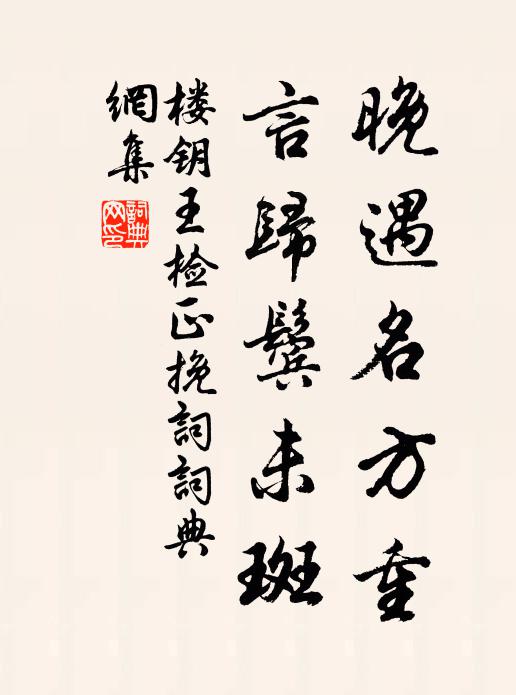 晚遇名方重
言歸鬓未斑
楼钥王检正挽詞詞典
網集
詞典网印